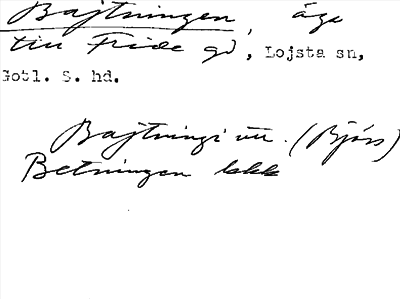 Bajtningen, äge
till Fride gd, Lojsta sn,
Gotl. S. hd.
Bajtningi (Björs)
Betningen